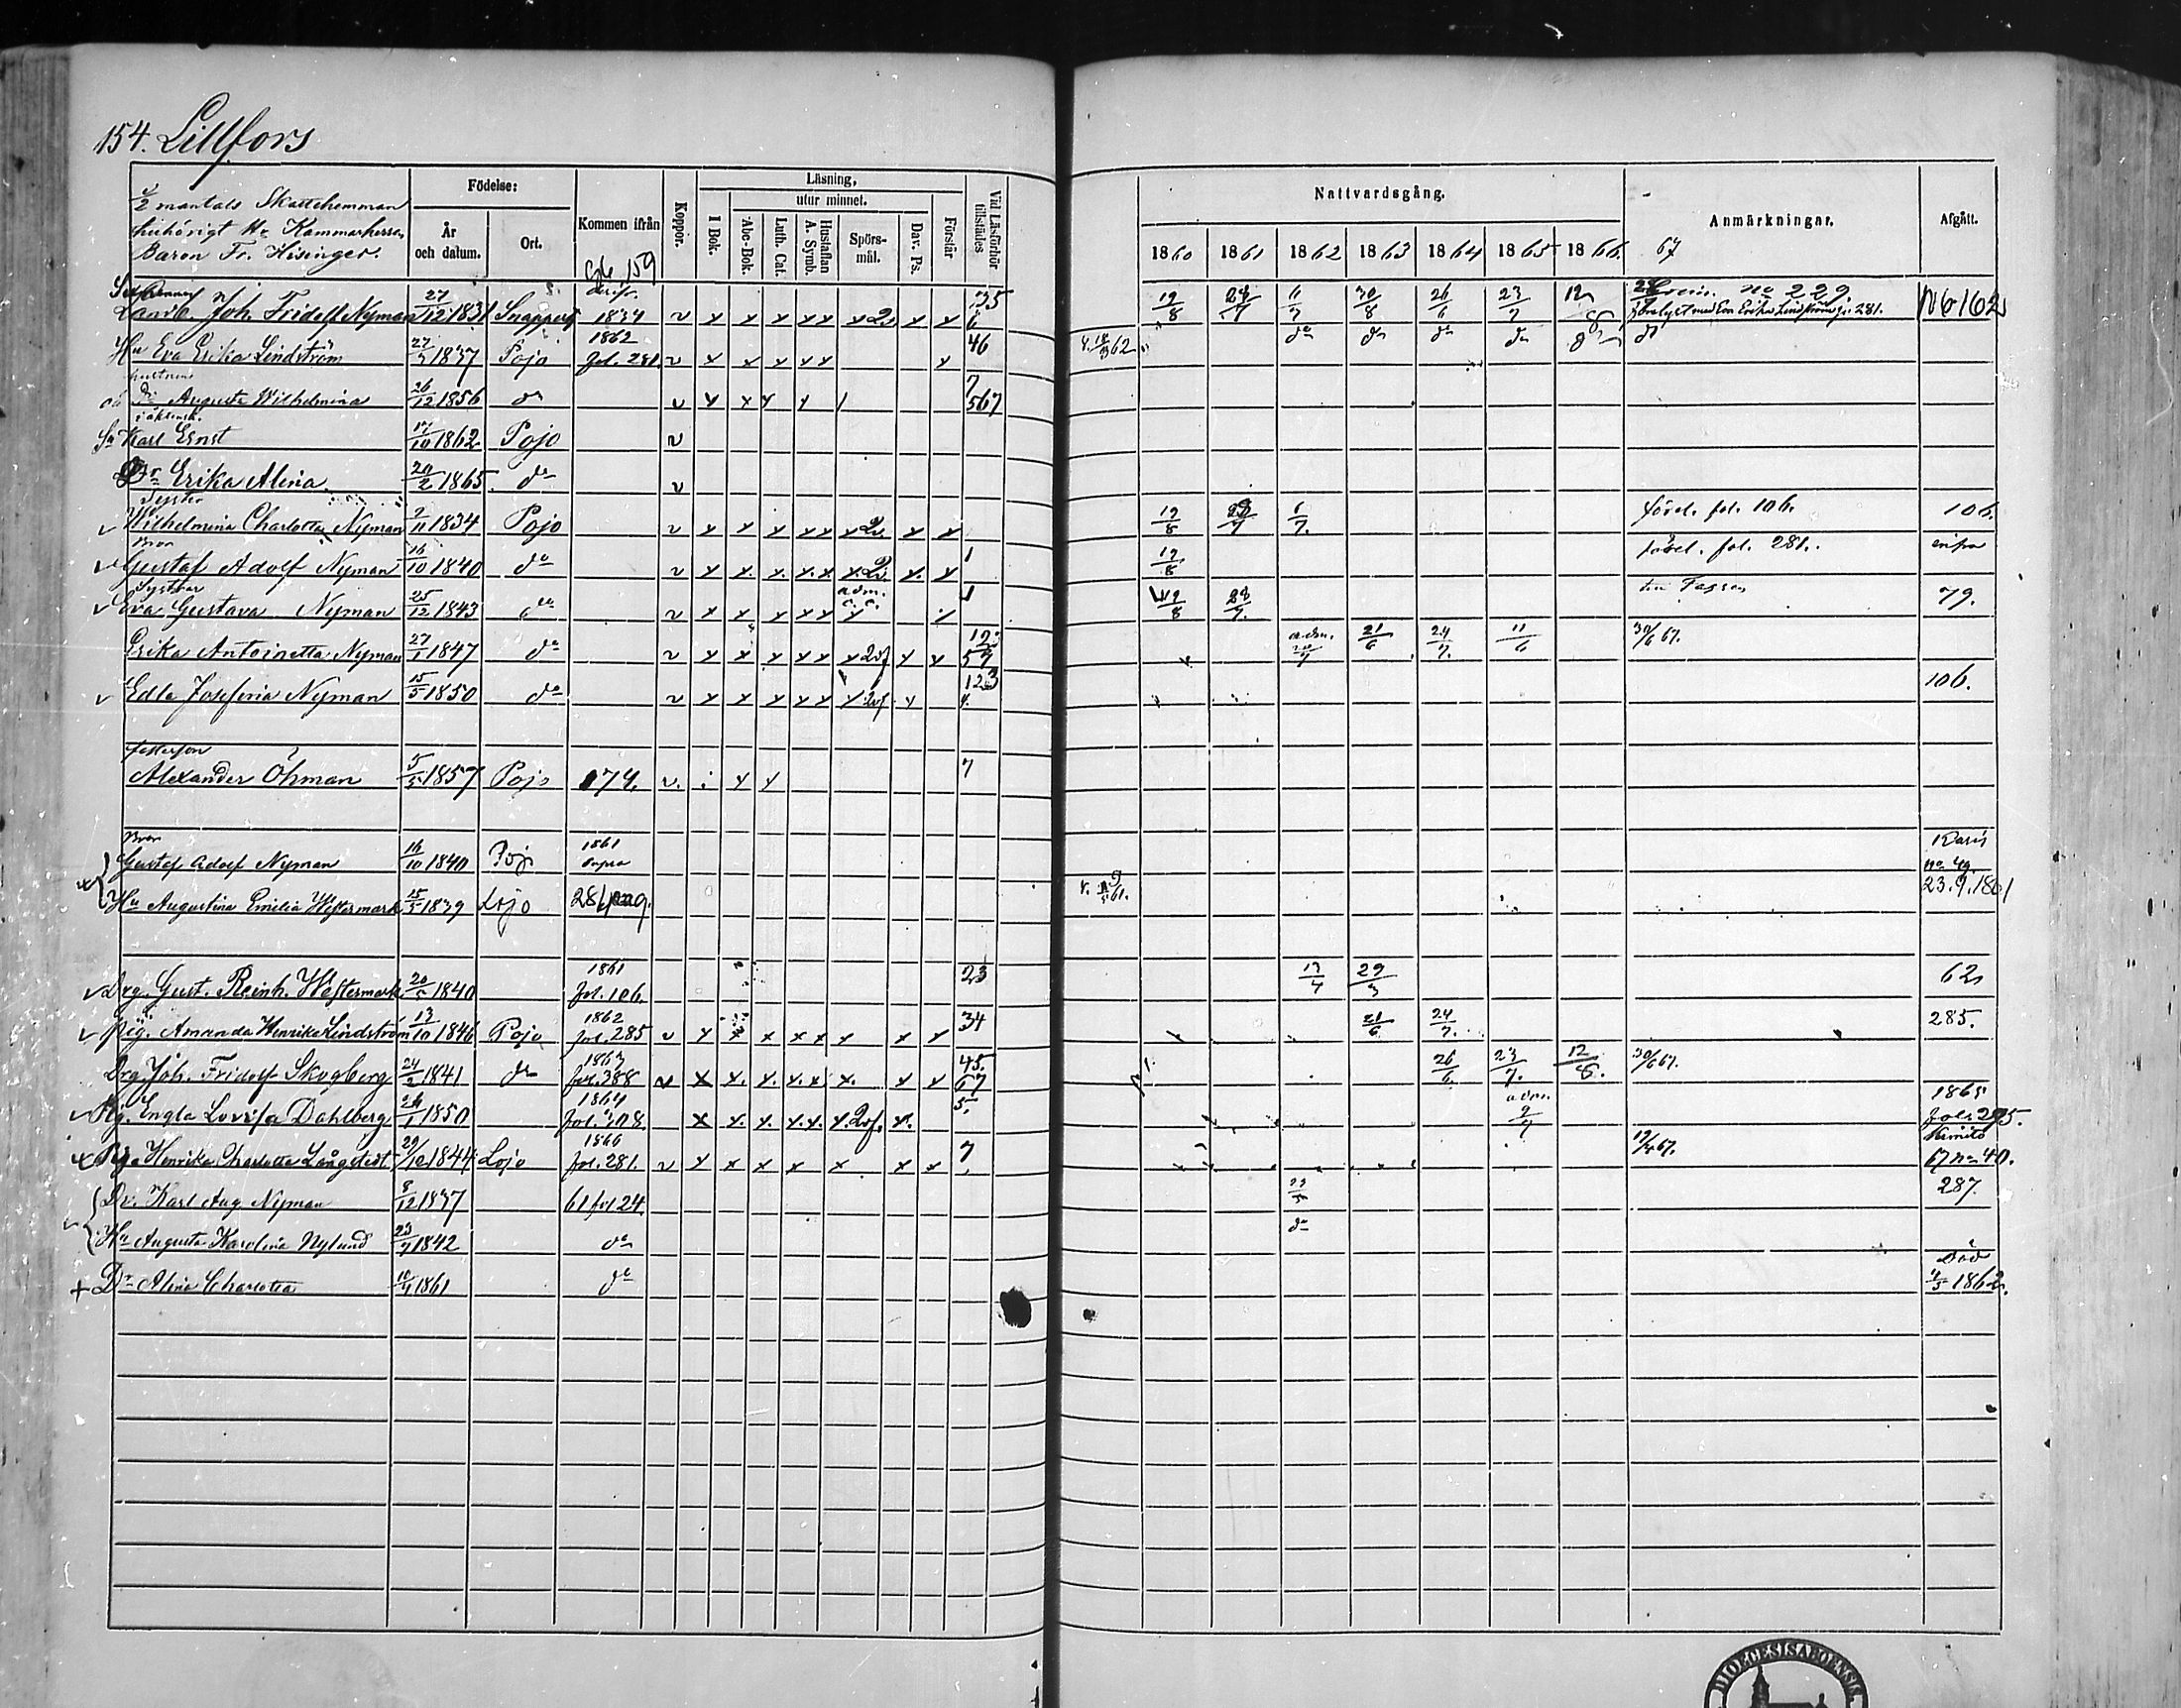 154. Lillfors
1/2 mantals Skattehemman
tillhörigt Hr Kammarherren
Baron Fr. Hisinger.
Födelse:
År och datum.
Ort.
Kommen ifrån
Gb 159
Koppor.
Läsning,
I Bok.
utur minnet.
Abc-Bok.
Luth. Cat.
Hustaflan A. Symb.
Spörs-mål.
Dav. Ps.
Förstår
Vid Läsförhör tillstädes
Nattvardsgång.
1860 1861 1862 1863 1864 1865 1866. 67
Anmärkningar.
Afgått.
Landb. Joh. Fridolf Nyman 27/12 1831 Snappertuna 1834 v x x x x x x 2 x x 35 6 19/8 6/7 30/8 26/6 23/7 no 229 No 162
förelyst med Eva Erika Lindström fr. 281.
Hu Eva Erika Lindström 22/3 1837 Pojo 1862 fol. 281. v x x x x x x 46 62 do do do do do do
hustruns
Dr Augusta Wilhelmina 26/12 1856 do v 7 567
oäktensk.
Sn Karl Ernst 17/10 1862 Pojo v
Dr Erika Alina 20/2 1865. do v
Syster
Wilhelmina Charlotta Nyman 2/11 1834 Pojo v x x x x x x 2 x x 19/8 6/7. förel. fol. 106. 106.
Bror
Gustaf Adolf Nyman 16/10 1840 do v x x. x. x. x x. 2 x. x 1 19/8 förel. fol. 281. infra
Systrar
Eva Gustava Nyman 25/12 1843 do v x x x x x adm. 1 19/8 28/7. 79.
Erika Antoinetta Nyman 27/1 1847 do v x x x x x x x x 12 57 adm. 21/6 24/7. 11/6 30/6 67.
Edla Josefina Nyman 15/5 1850 do v x x x x x 123 4. 106.
fosterson
Alexander Öhman 5/5 1857 Pojo 174. v. 7
Bror
Gustaf Adolf Nyman 16/10 1840 Pojo 1861 supra Karis no 49.
Hu Augustina Emilia Westermark 15/5 1839 Lojo 281 pag. 61. 23.9.1861
Drg. Gust. Reinh. Westermark 20/5 1840 1861 fol. 106. 23 29/3 62
Pig. Amanda Henrika Lindström 13/10 1846 Pojo 1862 fol. 285 v x x x x x x x x 34 21/6 24/7. 285.
Drg. Joh. Fridolf Skogberg 24/2 1841 do 1863 fol. 388 v x x. x. x. x x. x x 45. 67 26/6. 23/7. 12/8. 30/6 67.
Pig. Ingla Lovisa Dahlberg 24/1 1850 1864 fol. 108. x x. x. x. x. x. x. 5. adm. 9/7 1865 fol. 295.
Pig. Henrika Charlotta Långstedt 29/12 1844 Lojo 1866 fol. 281. v x x x x x x x x 7 19/4 67. Kimito 67 no 40.
Dr. Karl Aug. Nyman 8/12 1837 61 fol 24. 287.
Hu Augusta Karolina Nylund 23/7 1842 do do
Dr Alina Charlotta 10/4 1861 do död 4/5 1862.
DIOECESIS ABOENSIS